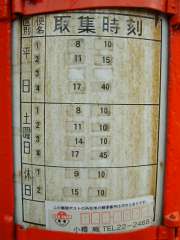 種別 便名 取集時刻
平日 ① 8 10
② 11 15
③
④ 17 40
土曜日 ① 8 10
② 11 10
③ 14 10
④ 17 45
休日 ① 9 10
② 15 10
小樽 TEL22-2468